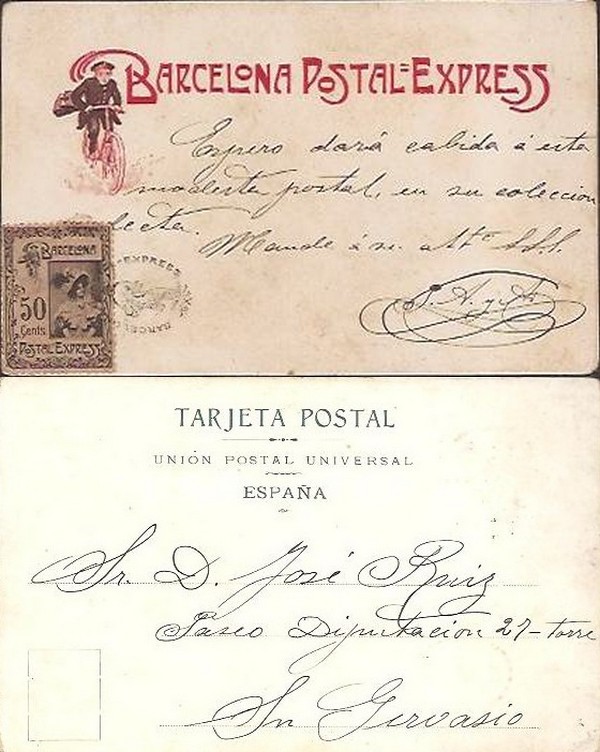 BARCELONA POSTAL-EXPRESS
Espero dará cabida á esta
modesta postal, en su coleccion
lecta.
Mande á su att° S.S.S.
BARCELONA
50
Cents.
POSTAL EXPRESS
EXPRESS
BARCEL
TARJETA POSTAL
UNIÓN POSTAL UNIVERSAL
ESPAÑA
Sr. D. José Ruiz
Paseo Diputacion 27-torre
Sn Gervasio